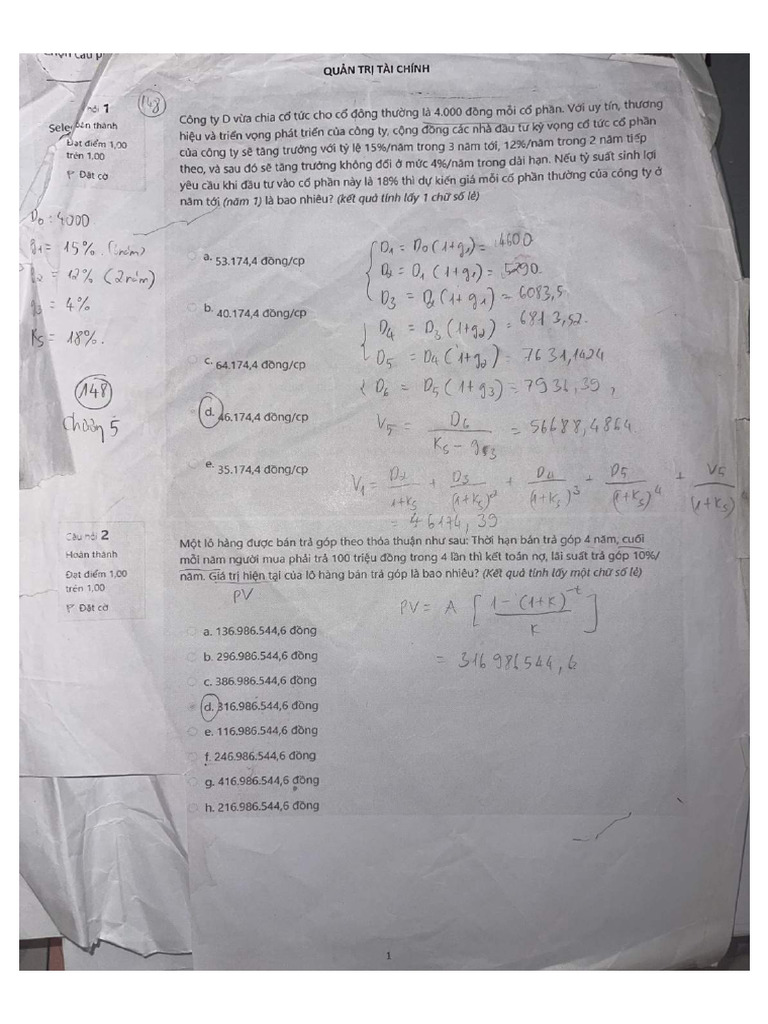 QUẢN TRỊ TÀI CHÍNH
148
1
Đạt điểm 1,00
trên 1,00
Đặt cờ
Công ty D vừa chia cổ tức cho cổ đông thường là 4.000 đồng mỗi cổ phần. Với uy tín, thương
hiệu và triển vọng phát triển của công ty, cộng đồng các nhà đầu tư kỳ vọng cổ tức cổ phần
của công ty sẽ tăng trưởng với tỷ lệ 15%/năm trong 3 năm tới, 12%/năm trong 2 năm tiếp
theo, và sau đó sẽ tăng trưởng không đổi ở mức 4%/năm trong dài hạn. Nếu tỷ suất sinh lợi
yêu cầu khi đầu tư vào cổ phần này là 18% thì dự kiến giá mỗi cổ phần thường của công ty ở
năm tới (năm 1) là bao nhiêu? (kết quả tính lấy 1 chữ số lẻ)
D₀ : 4000
g₁ = 15% (3 năm)
g₂ = 12% (2 năm)
g₃ = 4%
Ks = 18%.
148
Chương 5
a. 53.174,4 đồng/cp
b. 40.174,4 đồng/cp
c. 64.174,4 đồng/cp
d. 46.174,4 đồng/cp
e. 35.174,4 đồng/cp
D₁ = D₀ (1+g₁) = 4600
D₂ = D₁ (1+g₁) = 5290.
D₃ = D₂ (1+g₁) = 6083,5
D₄ = D₃ (1+g₂) = 6813,52.
D₅ = D₄ (1+g₂) = 7631,1424
D₆ = D₅ (1+g₃) = 7936,39,
V₅ = D₆ / (Ks - g₃) = 56688,4864
V₁ = D₂/(1+Ks) + D₃/(1+Ks)² + D₄/(1+Ks)³ + D₅/(1+Ks)⁴ + V₅/(1+Ks)⁴
= 46174,39
Câu hỏi 2
Hoàn thành
Đạt điểm 1,00
trên 1,00
Đặt cờ
Một lô hàng được bán trả góp theo thỏa thuận như sau: Thời hạn bán trả góp 4 năm, cuối
mỗi năm người mua phải trả 100 triệu đồng trong 4 lần thì kết toán nợ, lãi suất trả góp 10%/
năm. Giá trị hiện tại của lô hàng bán trả góp là bao nhiêu? (Kết quả tính lấy một chữ số lẻ)
PV
PV = A [ (1 - (1+K)⁻ᵗ) / K ]
= 316986544,6
a. 136.986.544,6 đồng
b. 296.986.544,6 đồng
c. 386.986.544,6 đồng
d. 316.986.544,6 đồng
e. 116.986.544,6 đồng
f. 246.986.544,6 đồng
g. 416.986.544,6 đồng
h. 216.986.544,6 đồng
1